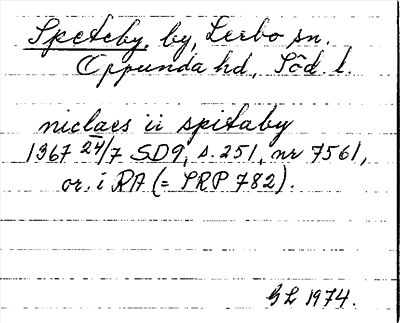 Speteby, by, Lerbo sn.
Oppunda hd, Söd l.
niclaes ii spitaby
1367 24/7 SD9, s. 251, nr 7561,
or. i RA (= SRP 782).
GL 1974.